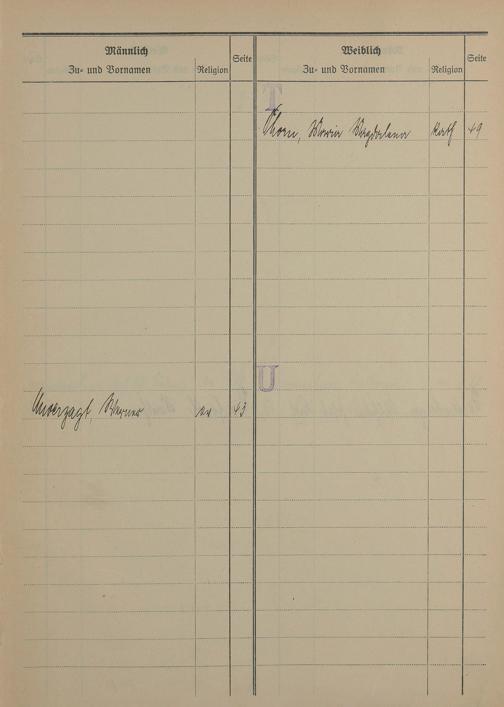 Männlich
Zu- und Vornamen Religion Seite
Weiblich
Zu- und Vornamen Religion Seite
T
Thorn, Maria Magdalena Kath 49
U
Unverzagt, Werner ev 43